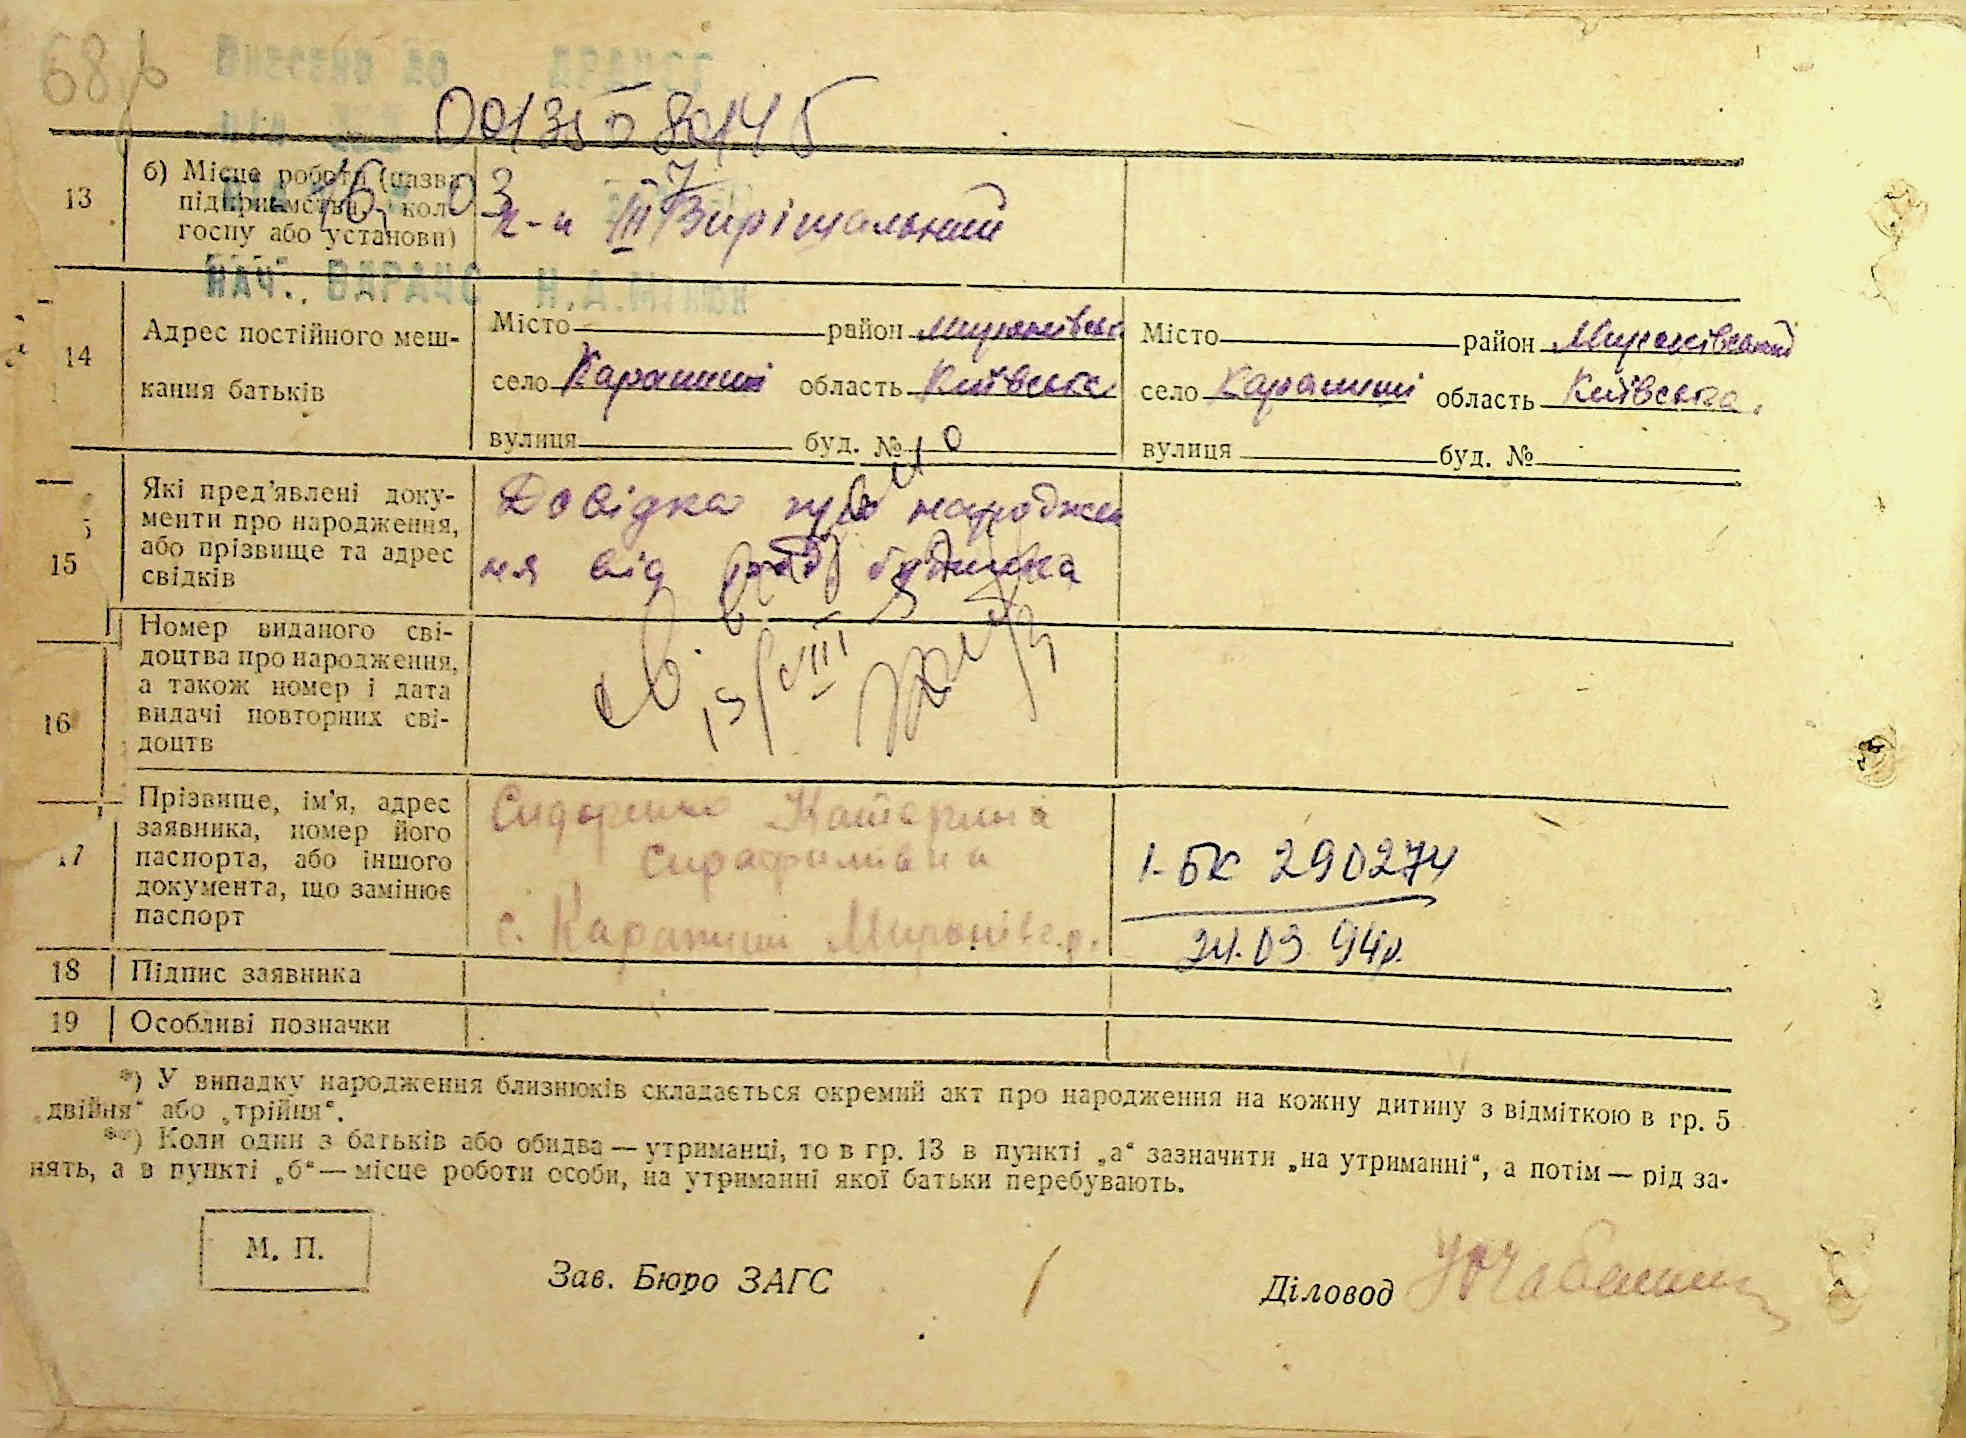 68
Внесено до ДРАЦСГ
0013580145
13 б) Місце роботи (назва
підприємства, кол-
госпу або установи)
к-п ІІІ Вирішальний
НАЧ. ВДРАЦС
14 Адрес постійного меш-
кання батьків
Місто район Миронівськ
село Карапиші область Київська
вулиця буд. №
Місто район Миронівський
село Карапиші область Київська.
вулиця буд. №
15 Які пред’явлені доку-
менти про народження,
або прізвище та адрес
свідків
Довідка про народжен
ня від род будинка
16 Номер виданого сві-
доцтва про народження,
а також номер і дата
видачі повторних сві-
доцтв
17 Прізвище, ім’я, адрес
заявника, номер його
паспорта, або іншого
документа, що замінює
паспорт
Сидоренко Катерина
Сирафимівна
с. Карапиші Миронівс. р.
1-БК 290274
24.03 94р.
18 Підпис заявника
19 Особливі позначки
*) У випадку народження близнюків складається окремий акт про народження на кожну дитину з відміткою в гр. 5
„двійня“ або „трійня“.
**) Коли один з батьків або обидва — утриманці, то в гр. 13 в пункті „а“ зазначити „на утриманні“, а потім — рід за-
нять, а в пункті „б“ — місце роботи особи, на утриманні якої батьки перебувають.
М. П.
Зав. Бюро ЗАГС
Діловод